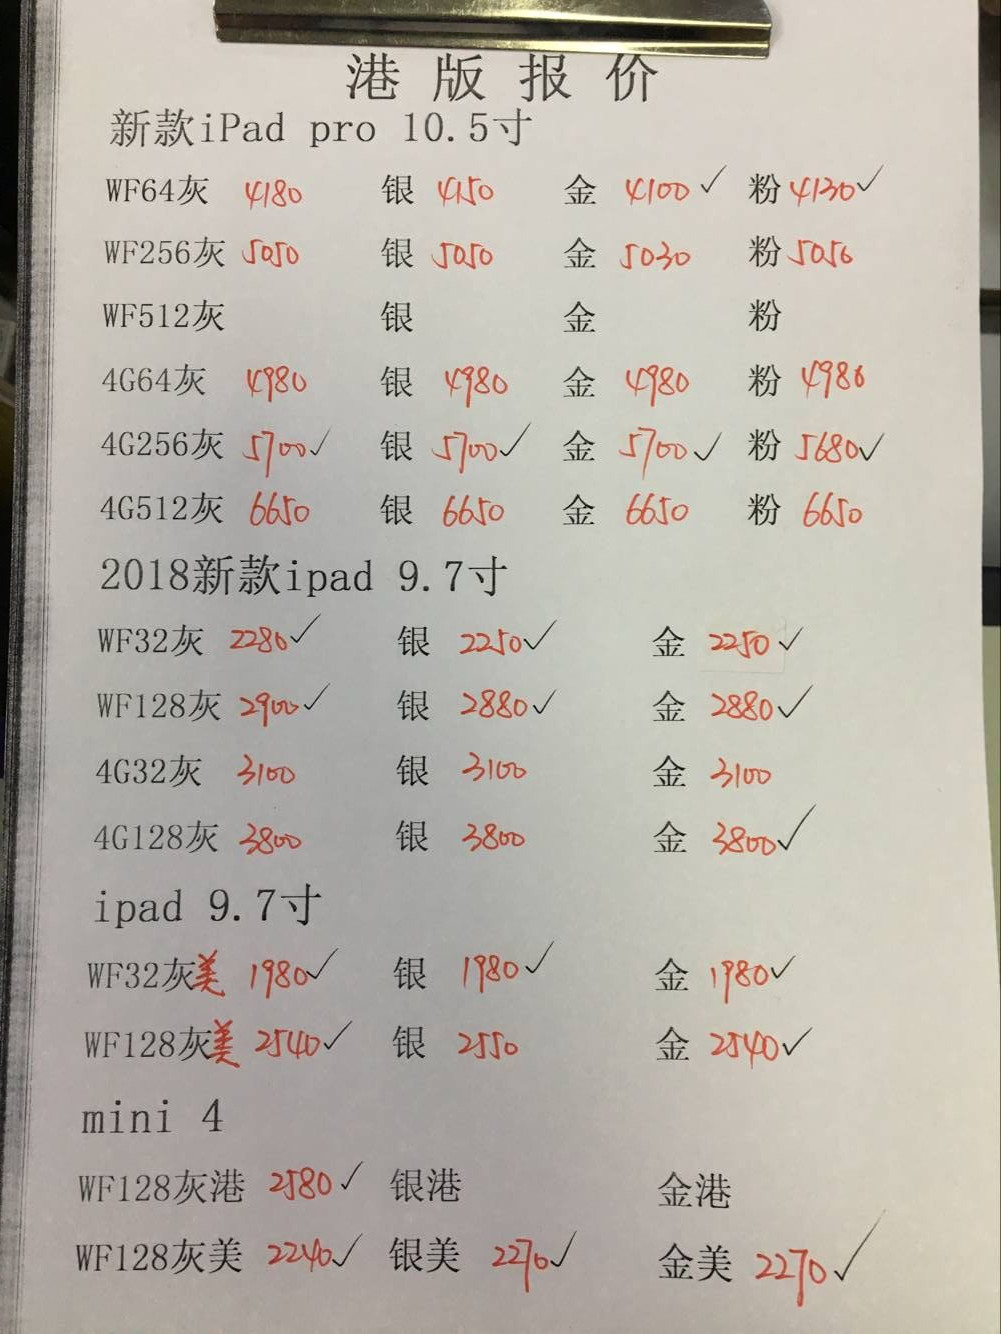 港版报价
新款iPad pro 10.5寸
WF64灰 4180 银 4150 金 4100✓ 粉 4130✓
WF256灰 5050 银 5050 金 5030 粉 5050
WF512灰 银 金 粉
4G64灰 4980 银 4980 金 4980 粉 4980
4G256灰 5700✓ 银 5700✓ 金 5700✓ 粉 5680✓
4G512灰 6650 银 6650 金 6650 粉 6650
2018新款ipad 9.7寸
WF32灰 2280✓ 银 2250✓ 金 2250✓
WF128灰 2900✓ 银 2880✓ 金 2880✓
4G32灰 3100 银 3100 金 3100
4G128灰 3800 银 3800 金 3800✓
ipad 9.7寸
WF32灰美 1980✓ 银 1980✓ 金 1980✓
WF128灰美 2540✓ 银 2550 金 2540✓
mini 4
WF128灰港 2580✓ 银港 金港
WF128灰美 2240✓ 银美 2270✓ 金美 2270✓